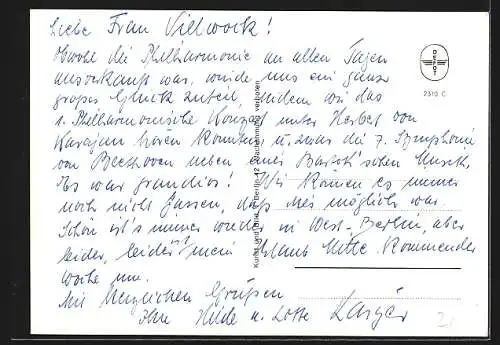 Liebe Frau Vielwock!
Obwohl die Philharmonie an allen Tagen
ausverkauft war, wurde uns ein ganz
großes Glück zuteil, indem wir das
1. Philharmonische Konzert unter Herbert von
Karajan hören konnten, u. zwar die 7. Symphonie
von Beethoven neben einer Bartók'schen Musik.
Es war grandios! Wir können es immer
noch nicht fassen, daß dies möglich war.
Schön ist's immer wieder in West-Berlin, aber
leider, leider ist mein Urlaub Mitte kommender
Woche um.
Mit herzlichen Grüßen
Hilde u. Lotte
DEGPOT
2310 C
Berlin 12 Nachdruck verboten